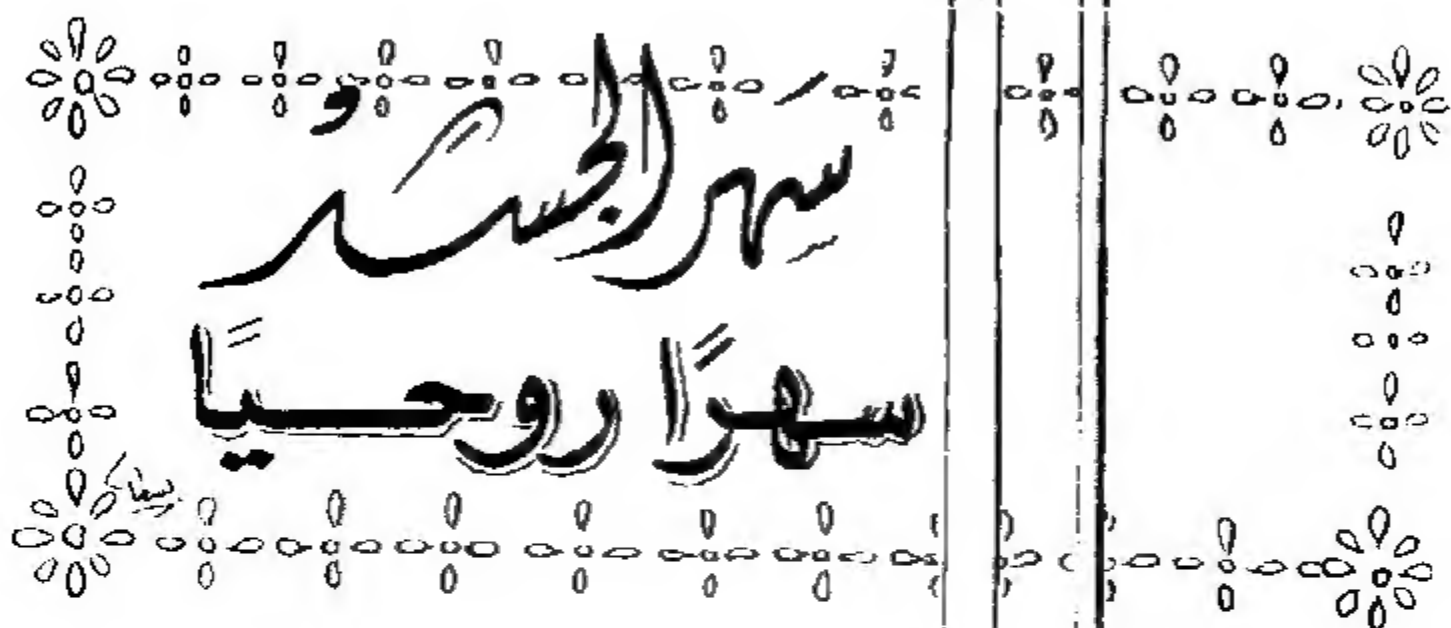 سَهِر الجسدُ
سهرًا روحيًا